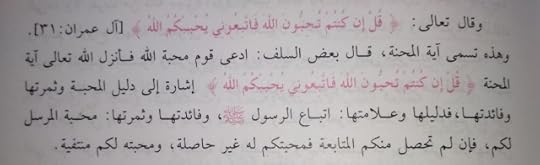 وقال تعالى: ﴿ قُلْ إِن كُنتُمْ تُحِبُّونَ اللَّهَ فَاتَّبِعُونِي يُحْبِبْكُمُ اللَّهُ ﴾ [آل عمران: ٣١].
وهذه تسمى آية المحنة، قال بعض السلف: ادعى قوم محبة الله فأنزل الله تعالى آية
المحنة ﴿ قُلْ إِن كُنتُمْ تُحِبُّونَ اللَّهَ فَاتَّبِعُونِي يُحْبِبْكُمُ اللَّهُ ﴾ إشارة إلى دليل المحبة وثمرتها
وفائدتها، فدليلها وعلامتها: اتباع الرسول ﷺ، وفائدتها وثمرتها: محبة المرسل
لكم، فإن لم تحصل منكم المتابعة فمحبتكم له غير حاصلة، ومحبته لكم منتفية.